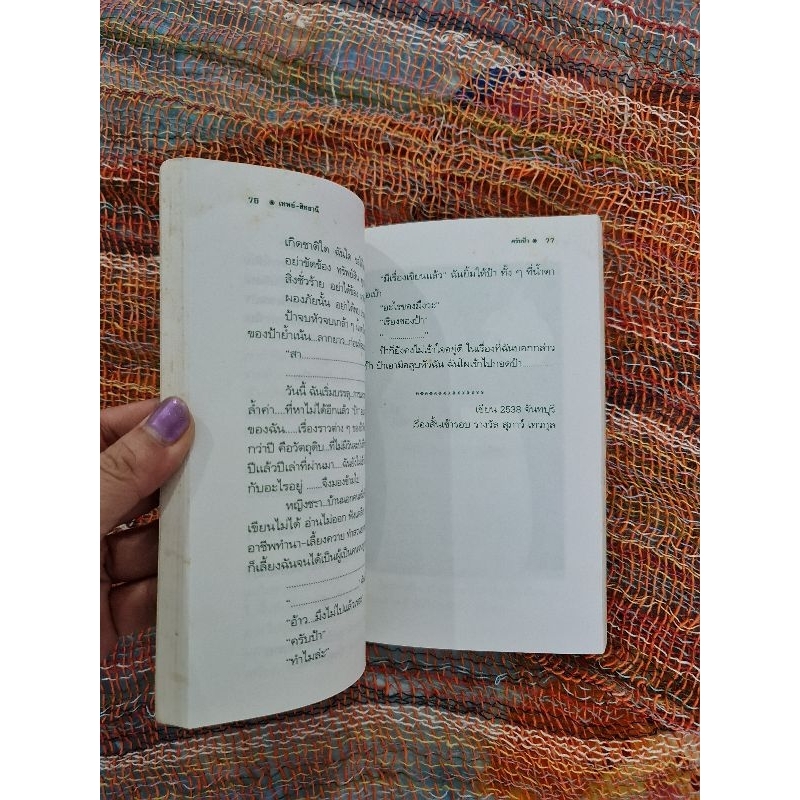 76 ๏ เทพย์-สิทธานี
เกิดชาติใด ฉันใด
อย่าขัดข้อง ทรัพย์สิน
สิ่งชั่วร้าย อย่าได้ข้อง
ผองภัยนั้น อย่าได้
ป้าจบหัวจบเกล้า ๆ
ของป้าย้ำเน้น...ลากยาว...ก่อน
"สา
วันนี้ ฉันเริ่มบรรลุ
ล้ำค่า....ที่หาไม่ได้อีกแล้ว ป้า
ของฉัน.....เรื่องราวต่าง ๆ ของ
กว่าปี คือวัตถุดิบ...ที่ไม่มีวัน
ปีแล้วปีเล่าที่ผ่านมา....
กับอะไรอยู่ .......จึงมองข้าม
หญิงชรา...บ้านนอก
เขียนไม่ได้ อ่านไม่ออก
อาชีพทำนา-เลี้ยงควาย
ก็เลี้ยงฉันจนได้เป็นผู้เป็นคน
"อ้าว...มึงไม่ไปแล้ว
"ครับป้า"
"ทำไมล่ะ"
ครับป้า ๏ 77
"มีเรื่องเขียนแล้ว" ฉันยิ้มให้ป้า ทั้ง ๆ ที่น้ำตา
"อะไรของมึงวะ"
"เรื่องของป้า"
"......................"
ป้าก็ยังคงไม่เข้าใจอยู่ดี ในเรื่องที่ฉันบอกกล่าว
ป้าเอามือลูบหัวฉัน ฉันโผเข้าไปกอดป้า..........
****************
เขียน 2538 จันทบุรี
เรื่องสั้นเข้ารอบ รางวัล สุภาว์ เทวกุล